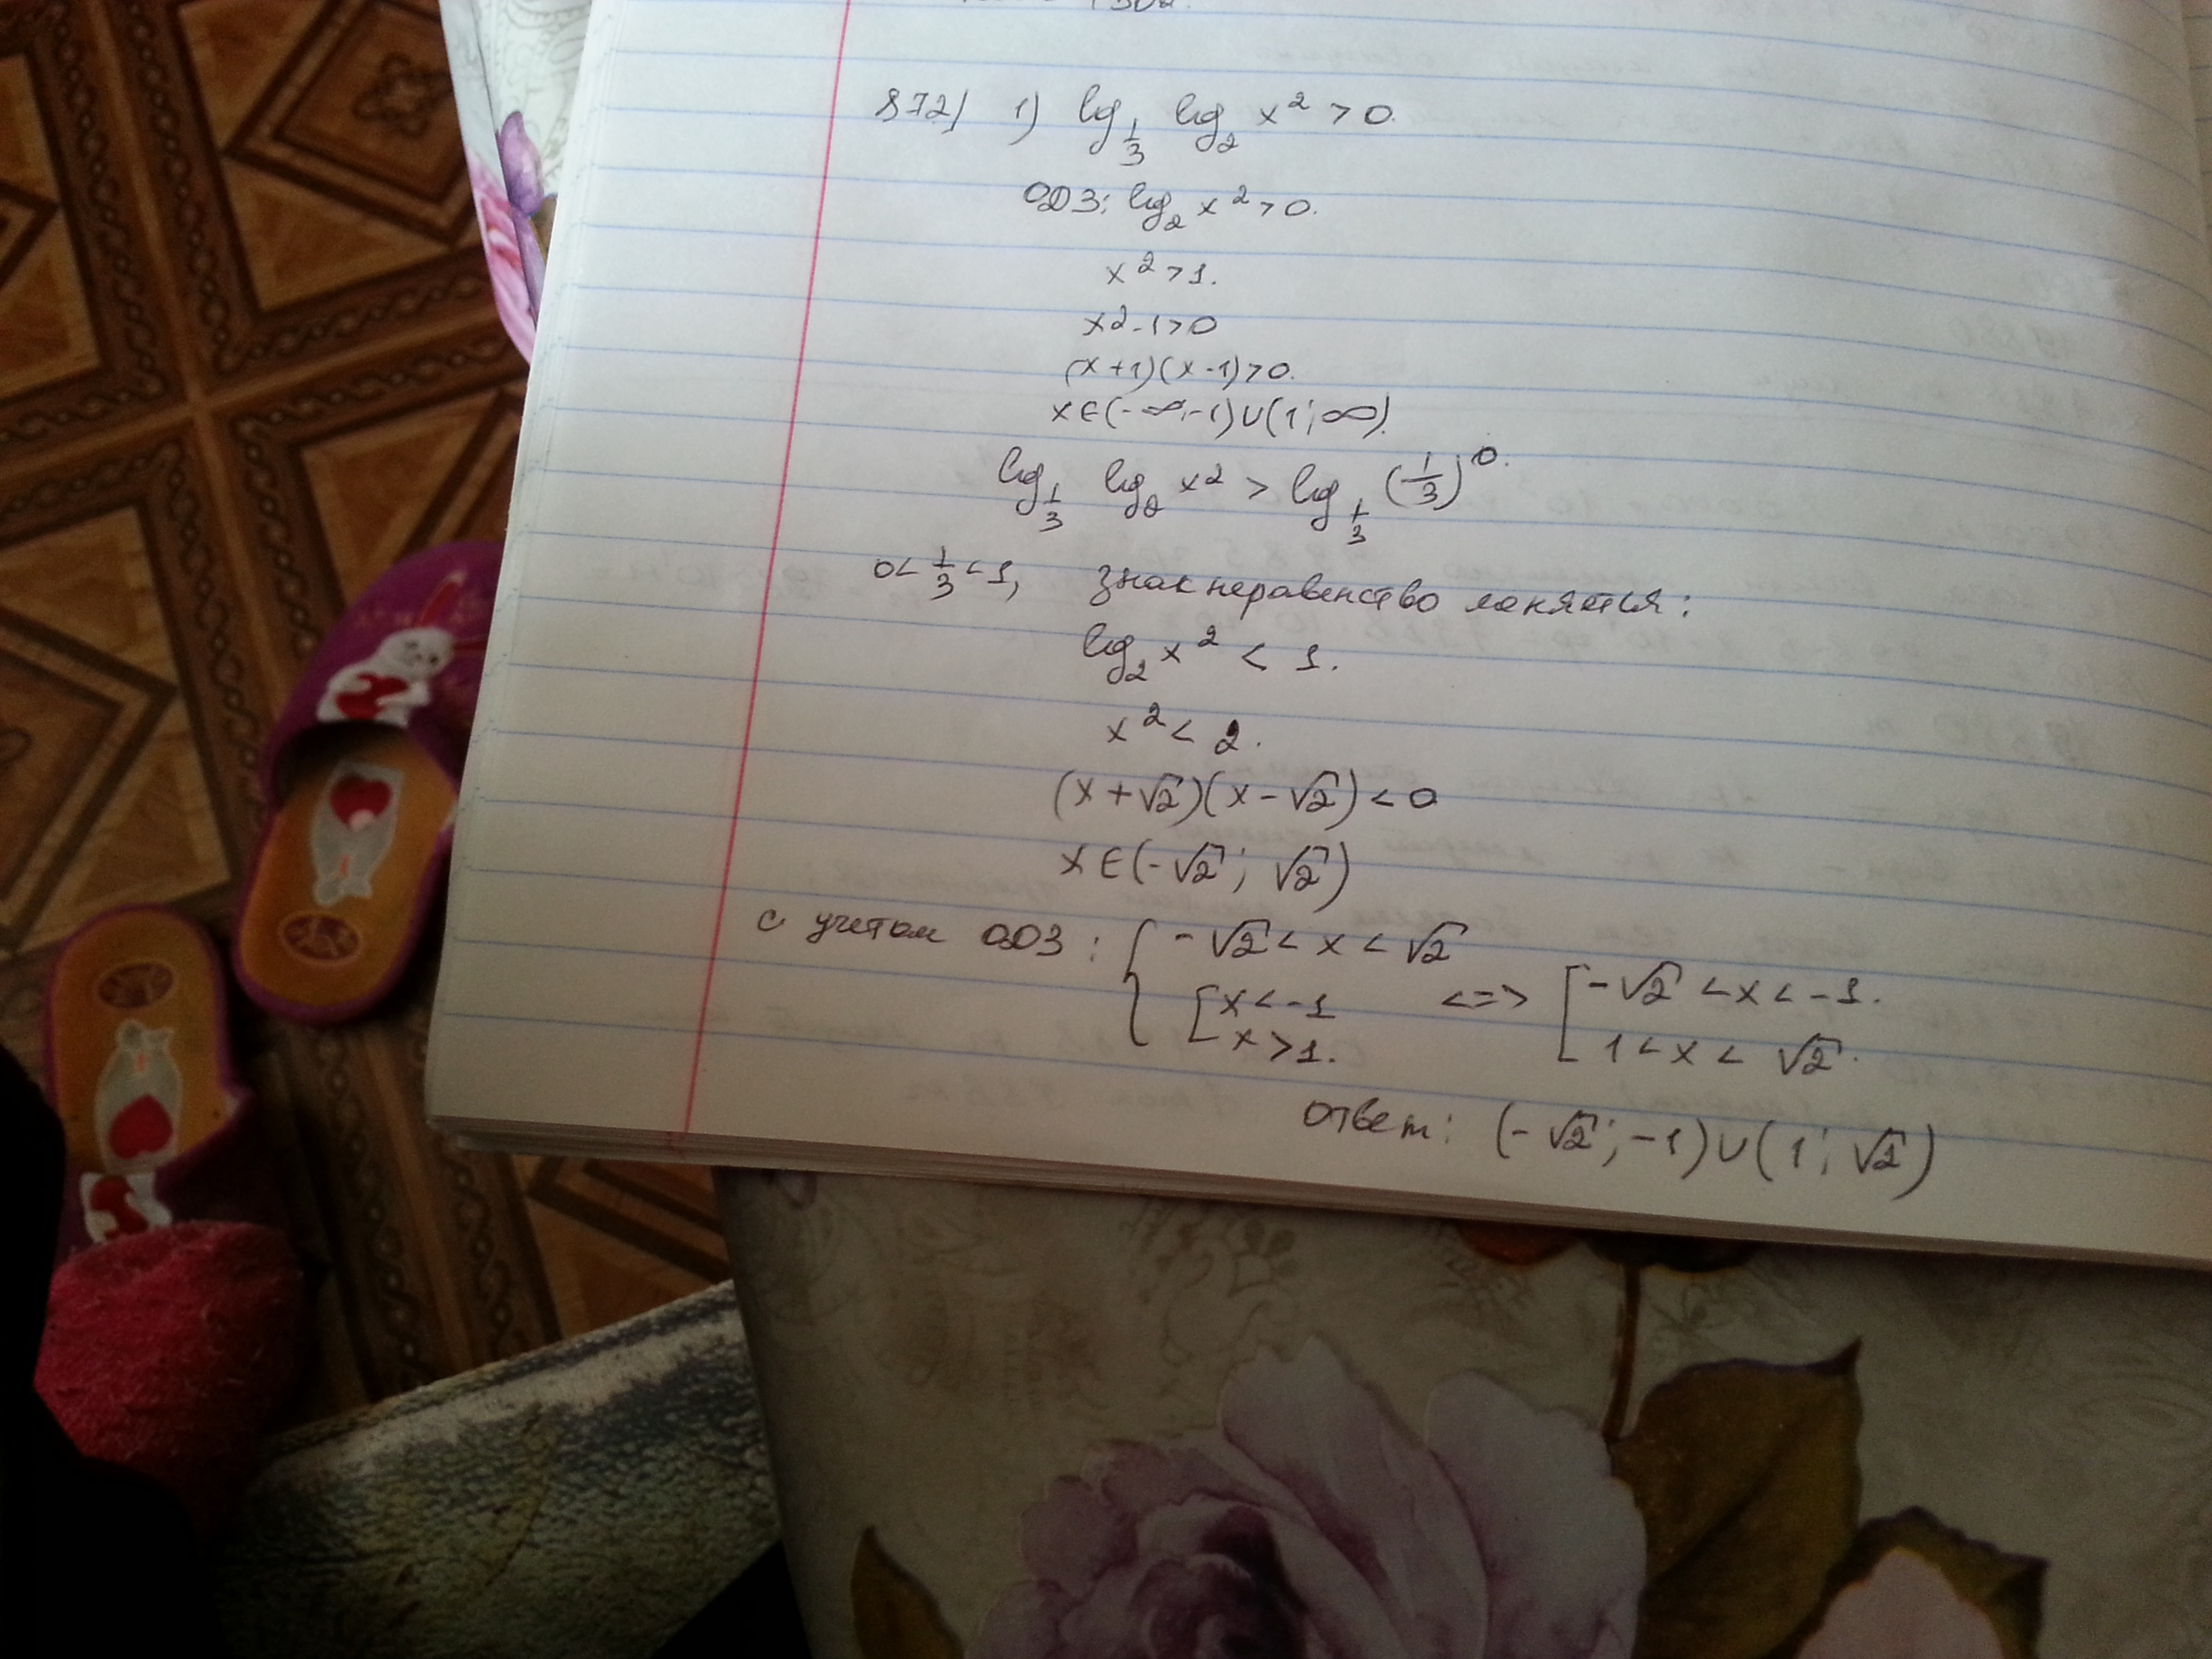 872) 1) log_{1/3} log_2 x² > 0.
ОДЗ: log_2 x² > 0.
x² > 1.
x2 - 1 > 0
(x + 1)(x - 1) > 0.
x ∈ (-∞; -1) ∪ (1; ∞).
log_{1/3} log_2 x² > log_{1/3} (1/3)^0.
0 < 1/3 < 1, знак неравенство меняется:
log_2 x² < 1.
x² < 2.
(x + √2)(x - √2) < 0
x ∈ (-√2; √2)
с учетом ОДЗ: { -√2 < x < √2
[ x < -1 <=> [ -√2 < x < -1.
x > 1. 1 < x < √2.
ответ: (-√2; -1) ∪ (1; √2)